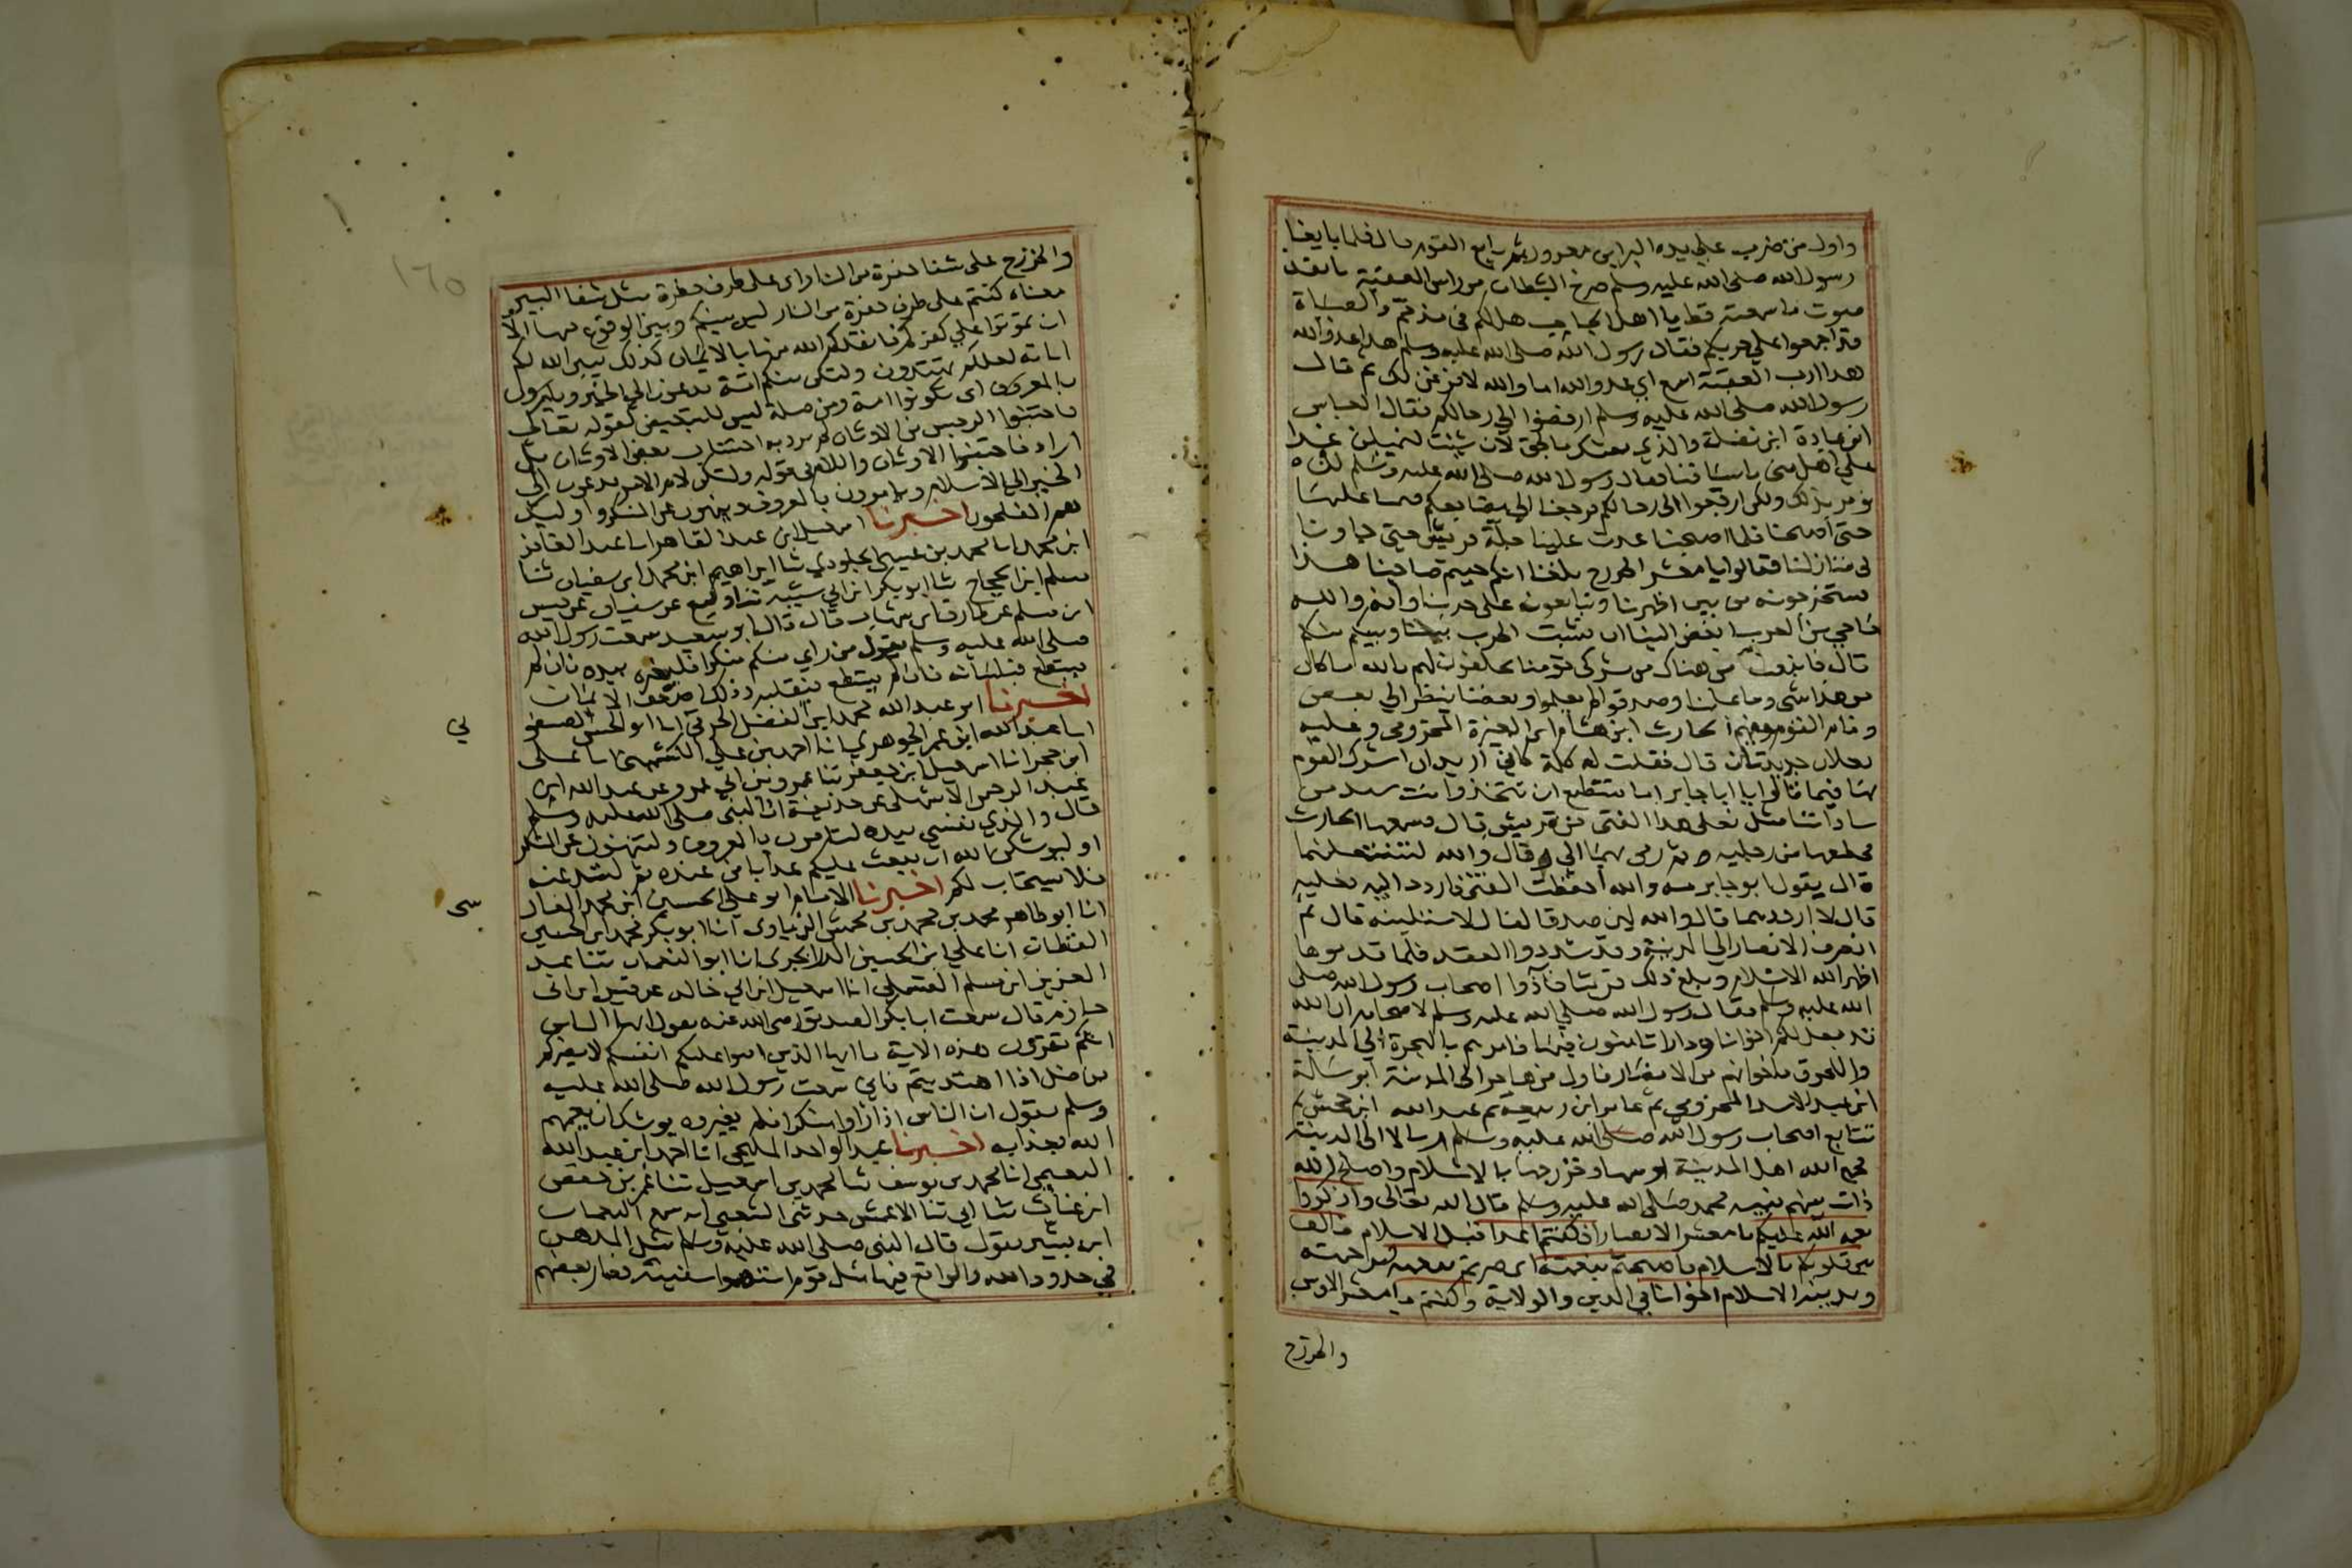 واول من ضرب علي يده البرا بن معرور ثم تتابع القوم قال فلما بايعنا
رسول الله صلى الله عليه وسلم صرخ الشيطان من راس العقبة بانفذ
صوت ما سمعته قط يا اهل الجباجب هل لكم في مذمم والصباة
قد اجمعوا علي حربكم فقال رسول الله صلى الله عليه وسلم هذا عدو الله
هذا ازب العقبة اسمع اي عدو الله اما والله لافزعن لك ثم قال
رسول الله صلى الله عليه وسلم ارفضوا الي رحالكم فقال العباس
ابن عبادة ابن نضلة والذي بعثك بالحق لان شئت لنميلن غدا
علي اهل منى باسيافنا فقال رسول الله صلى الله عليه وسلم لم
نومر بذلك ولكن ارجعوا الى رحالكم فرجعنا الي مضاجعكم فنمنا عليها
حتى اصبحنا فلما اصبحنا غدت علينا جلة قريش حتى جاونا
في منازلنا فقالوا يا معشر الخزرج بلغنا انكم جيتم صاحبنا هذا
تستخرجونه من بين اظهرنا وتبايعونه على حربنا وانه والله
ما حي من العرب ابغض الينا ان تنشب الحرب بيننا وبينهم منكم
قال فانبعث من هناك من مشركي قومنا يحلفون لهم بالله ما كان
من هذا شي وما علمنا وصدقوا لم يعلموا وبعضنا ينظر الي بعض
وقام القوم وفيهم الحارث ابن هشام ابن المغيرة المخزومي وعليه
نعلان جديدتان قال فقلت له كلمة كاني اريد ان اشرك القوم
بها فيما قالوا يا ابا جابر اما تستطيع ان تتخذ وانت سيد من
ساداتنا مثل نعلي هذا الفتى من قريش قال فسمعها الحارث
فخلعها من رجليه ثم رمى بهما الي وقال والله لتنتعلنهما
قال يقول ابو جابر مه والله احفظت الفتى فاردد اليه نعليه
قال لا اردهما قال والله لين صدق الفال لاستلبنه قال ثم
انصرف الانصار الي المدينة وقد شددوا العقد فلما قدموها
اظهر الله الاسلام وبلغ ذلك قريشا فاذوا اصحاب رسول الله صلى
الله عليه وسلم فقال رسول الله صلى الله عليه وسلم لاصحابه ان الله
قد جعل لكم اخوانا ودارا تامنون فيها فامرهم بالهجرة الى المدينة
واللحوق باخوانهم من الانصار فاول من هاجر الى المدينة ابو سلمة
ابن عبد الاسد المخزومي ثم عامر ابن ربيعة ثم عبد الله ابن جحش ثم
تتابع اصحاب رسول الله صلى الله عليه وسلم ارسالا الى المدينة
فجمع الله اهل المدينة اوسها وخزرجها بالاسلام واصلح الله
ذات بينهم بنبيه محمد صلى الله عليه وسلم قال الله تعالى واذكروا
نعمة الله عليكم يا معشر الانصار اذ كنتم اعدا قبل الاسلام فالف
بين قلوبكم بالاسلام فاصبحتم بنعمته اي صرتم بنعمته برحمته
وبدينه الاسلام اخوانا في الدين والولاية وكنتم يا معشر الاوس
والخزرج
١٦٥
والخزرج على شفا حفرة من النار اي على طرف حفرة مثل شفا البير
معناه كنتم على طرف حفرة من النار ليس بينكم وبين الوقوع فيها الا
ان تموتوا علي كفركم فانقذكم الله منها بالايمان كذلك يبين الله لكم
اياته لعلكم تهتدون ولتكن منكم امة يدعون الي الخير ويامرون
بالمعروف اي كونوا امة ومن صلة ليس للتبعيض كقوله تعالى
فاجتنبوا الرجس من الاوثان لم يرد به اجتناب بعض الاوثان بل
اراد فاجتنبوا الاوثان واللام في قوله ولتكن لام الامر يدعون الى
الخير الي الاسلام ويامرون بالمعروف وينهون عن المنكر واوليك
هم المفلحون اخبرنا اسمعيل ابن عبد القاهر انا عبد الغافر
ابن محمد انا محمد بن عيسى الجلودي ثنا ابراهيم ابن محمد ابن سفيان ثنا
مسلم ابن الحجاج ثنا ابو بكر ابن ابي شيبة ثنا وكيع عن سفيان عن قيس
ابن مسلم عن طارق ابن شهاب قال قال ابو سعيد سمعت رسول الله
صلى الله عليه وسلم يقول من راي منكم منكرا فليغيره بيده فان لم
يستطع فبلسانه فان لم يستطع فبقلبه وذلك اضعف الايمان
اخبرنا ابو عبد الله محمد ابن الفضل الخرقي انا ابو الحسن الطيسفوني
انا عبد الله ابن عمر الجوهري انا احمد بن علي الكشميهني انا علي
ابن حجر انا اسمعيل ابن جعفر ثنا عمرو بن ابي عمرو عن عبد الله ابن
عبد الرحمن الاشهلي عن حذيفة ان النبي صلى الله عليه وسلم
قال والذي نفسي بيده لتامرن بالمعروف ولتنهون عن المنكر
او ليوشكن الله ان يبعث عليكم عذابا من عنده ثم لتدعنه
فلا يستجاب لكم اخبرنا الامام ابو علي الحسين ابن محمد القاضي
انا ابو طاهر محمد بن محمد بن محمش الزيادي انا ابو بكر محمد ابن الحسين
القطان انا علي ابن الحسين الدرابجردي انا ابو النعمان ثنا عبد
العزيز ابن مسلم القسملي انا اسمعيل ابن ابي خالد عن قيس ابن ابي
حازم قال سمعت ابا بكر الصديق رضي الله عنه يقول ايها الناس
انكم تقرؤن هذه الاية يا ايها الذين امنوا عليكم انفسكم لا يضركم
من ضل اذا اهتديتم فاني سمعت رسول الله صلى الله عليه
وسلم يقول ان الناس اذا راوا منكرا فلم يغيروه يوشك ان يعمهم
الله بعذابه اخبرنا عبد الواحد المليحي انا احمد ابن عبد الله
النعيمي انا محمد بن يوسف ثنا محمد بن اسمعيل ثنا عمر بن حفص
ابن غياث ثنا ابي ثنا الاعمش حدثني الشعبي انه سمع النعمان
ابن بشير يقول قال النبي صلى الله عليه وسلم مثل المدهن
في حدود الله والواقع فيها مثل قوم استهموا سفينة فصار بعضهم